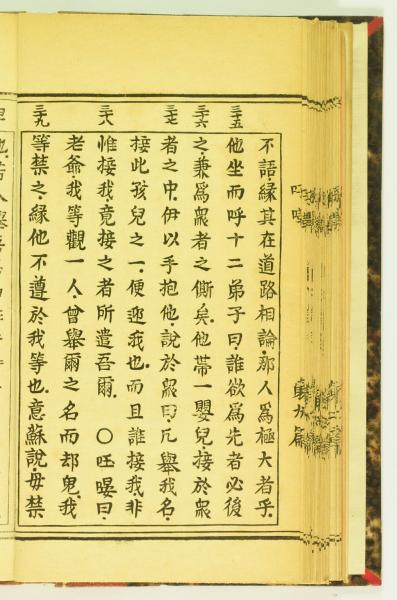 三十五
三十六
三十七
三十八
三十九
不語、緣其在道路相論、那人為極大者乎。
他坐而呼十二弟子曰、誰欲為先者必後
之、兼為眾者之僕矣。他帶一嬰兒、接於眾
者之中、伊以手抱他、說於眾曰、凡舉我名、
接此孩兒之一、便迎我也、而且誰接我、非
惟接我、竟接之者所遣吾爾。 〇 曰、
老爺、我等觀一人、曾舉爾之名而却鬼、我
等禁之、緣他不遵於我等也。意蘇說、毋禁
第九篇